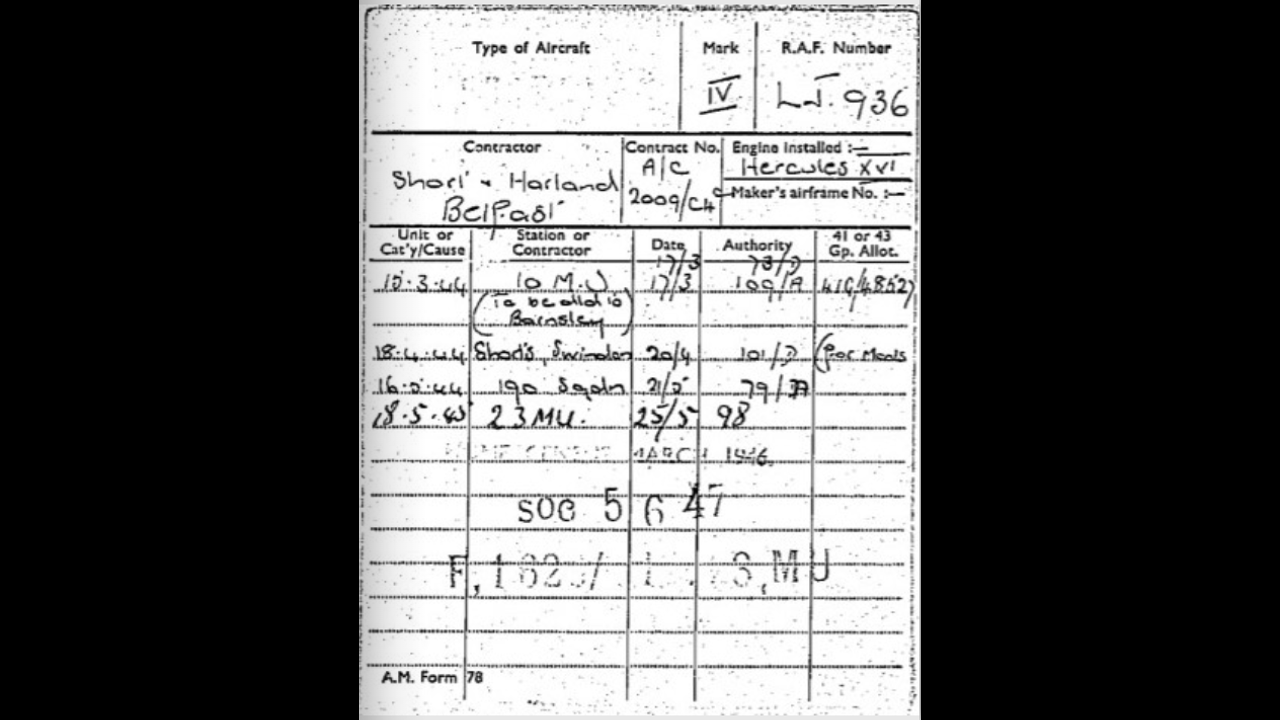 Type of Aircraft Mark R.A.F. Number
IV LJ. 936
Contractor Contract No. Engine installed :—
Short & Harland A/C Hercules XVI
Belfast 2009/C4 Maker's airframe No. :—
Unit or Cat'y/Cause Station or Contractor Date Authority 41 or 43 Gp. Allot.
17/3 73/D
10 M.U 17/3 109/A
(To be allot to
Barnsley)
18.4.44 Short's, Swindon 20/4 101/D (for Mods
190 Sqdn 79/
18.5.45 23 MU. 25/5 98
MARCH 1946
SOC 5 6 47
MU
A.M. Form 78